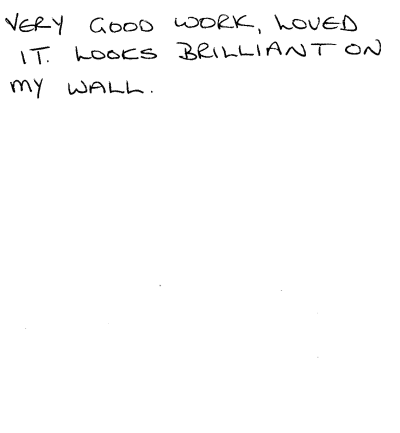 VERY GOOD WORK, LOVED
IT. LOOKS BRILLIANT ON
MY WALL.